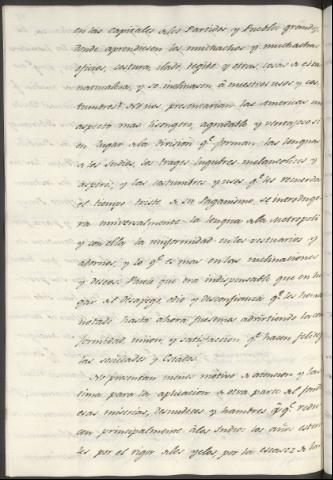 en las capitales de los Partidos, y Pueblos grandes,
donde aprendiesen los muchachos y muchachas
oficios, costura, ilado, tegido y otras cosas a esta
naturaleza, y se inclinaren á nuestros usos y cos-
tumbres. Nos presentarian las Americas un
aspecto mas lisongero, agradable y ventajoso si
en lugar de la division qe. forman las lenguas
de los Indios, los trages lugubres melancolicos y
y las costumbres y usos qe. les recuerda
el tiempo triste de su Paganismo, se introduge-
ra universalmente la lengua de la Metropoli
y con ella la uniformidad en los vestuarios y
adornos, y lo qe. es mas en las inclinaciones
y deseos. Para que era indispensable que en lu-
gar del despego, odio y desconfianza qe. les hemos
notado hasta ahora fuesemos advirtiendo la con-
formidad, union, y satisfaccion qe. hacen felices
las sociedades y Estados.
No presentan menos motivo de atencion y las-
tima para la aplicacion de otra parte del fondo
esas miserias, desnudeces y hambres qe.
cen principalmente á los Indios los años esteri-
les por el rigor de los yelos, por la escasez de las